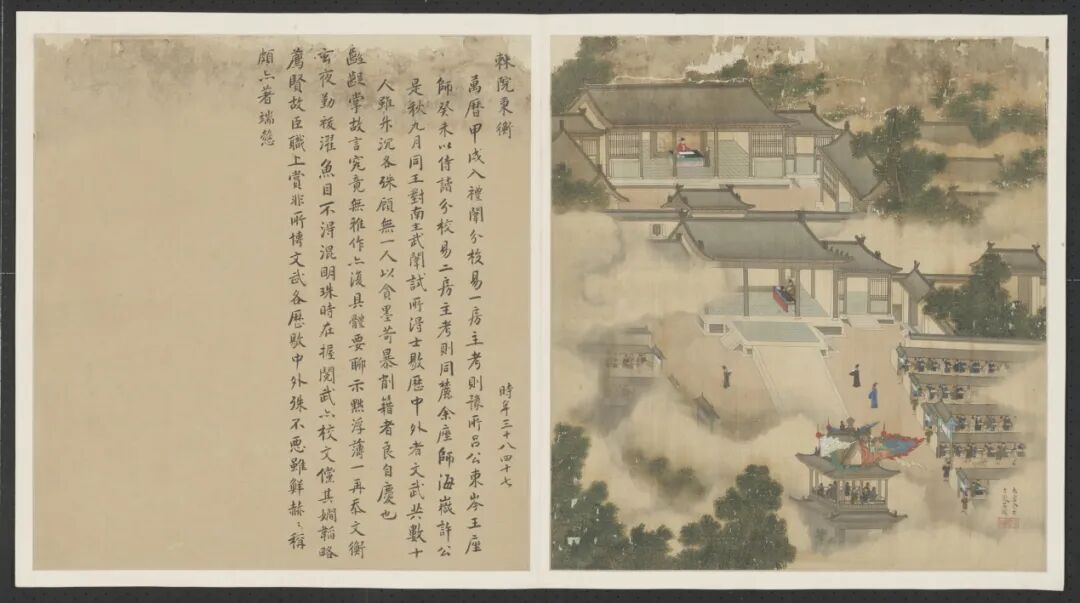 棘院秉衡
時年三十八四十七
萬曆甲戌入禮闈分校易一房主考則豫所呂公東岑王座
師癸未以侍讀分校易二房主考則同麓余座師海嶽許公
是秋九月同王對南主武闈試所得士敭歷中外者文武共數十
人雖升沉各殊顧無一人以貪墨苛暴削籍者良自慶也
掌故言究竟無雅作亦復具體要聊示黜浮薄一再忝文衡
玄夜勤祓濯魚目不得混明珠時在握閱武亦校文儻其嫻韜略
薦賢故臣職上賞非所慱文武各歷敭中外殊不惡雖鮮赫〻稱
頗亦著端愨